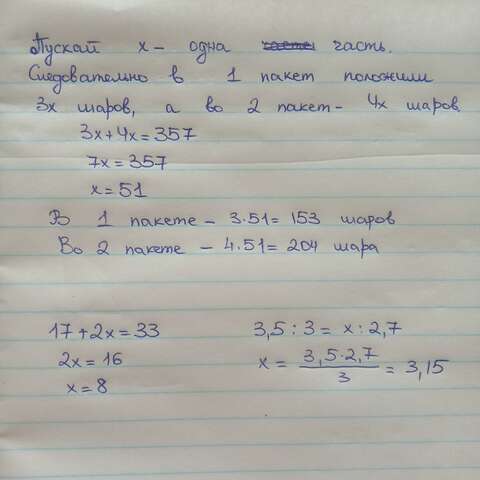 Пускай x - одна часть.
Следовательно в 1 пакет положили
3x шаров, а во 2 пакет - 4x шаров
3x+4x=357
7x=357
x=51
В 1 пакете - 3·51= 153 шаров
Во 2 пакете - 4·51= 204 шара
17+2x=33
2x=16
x=8
3,5:3= x:2,7
x= 3,5·2,7/3 = 3,15